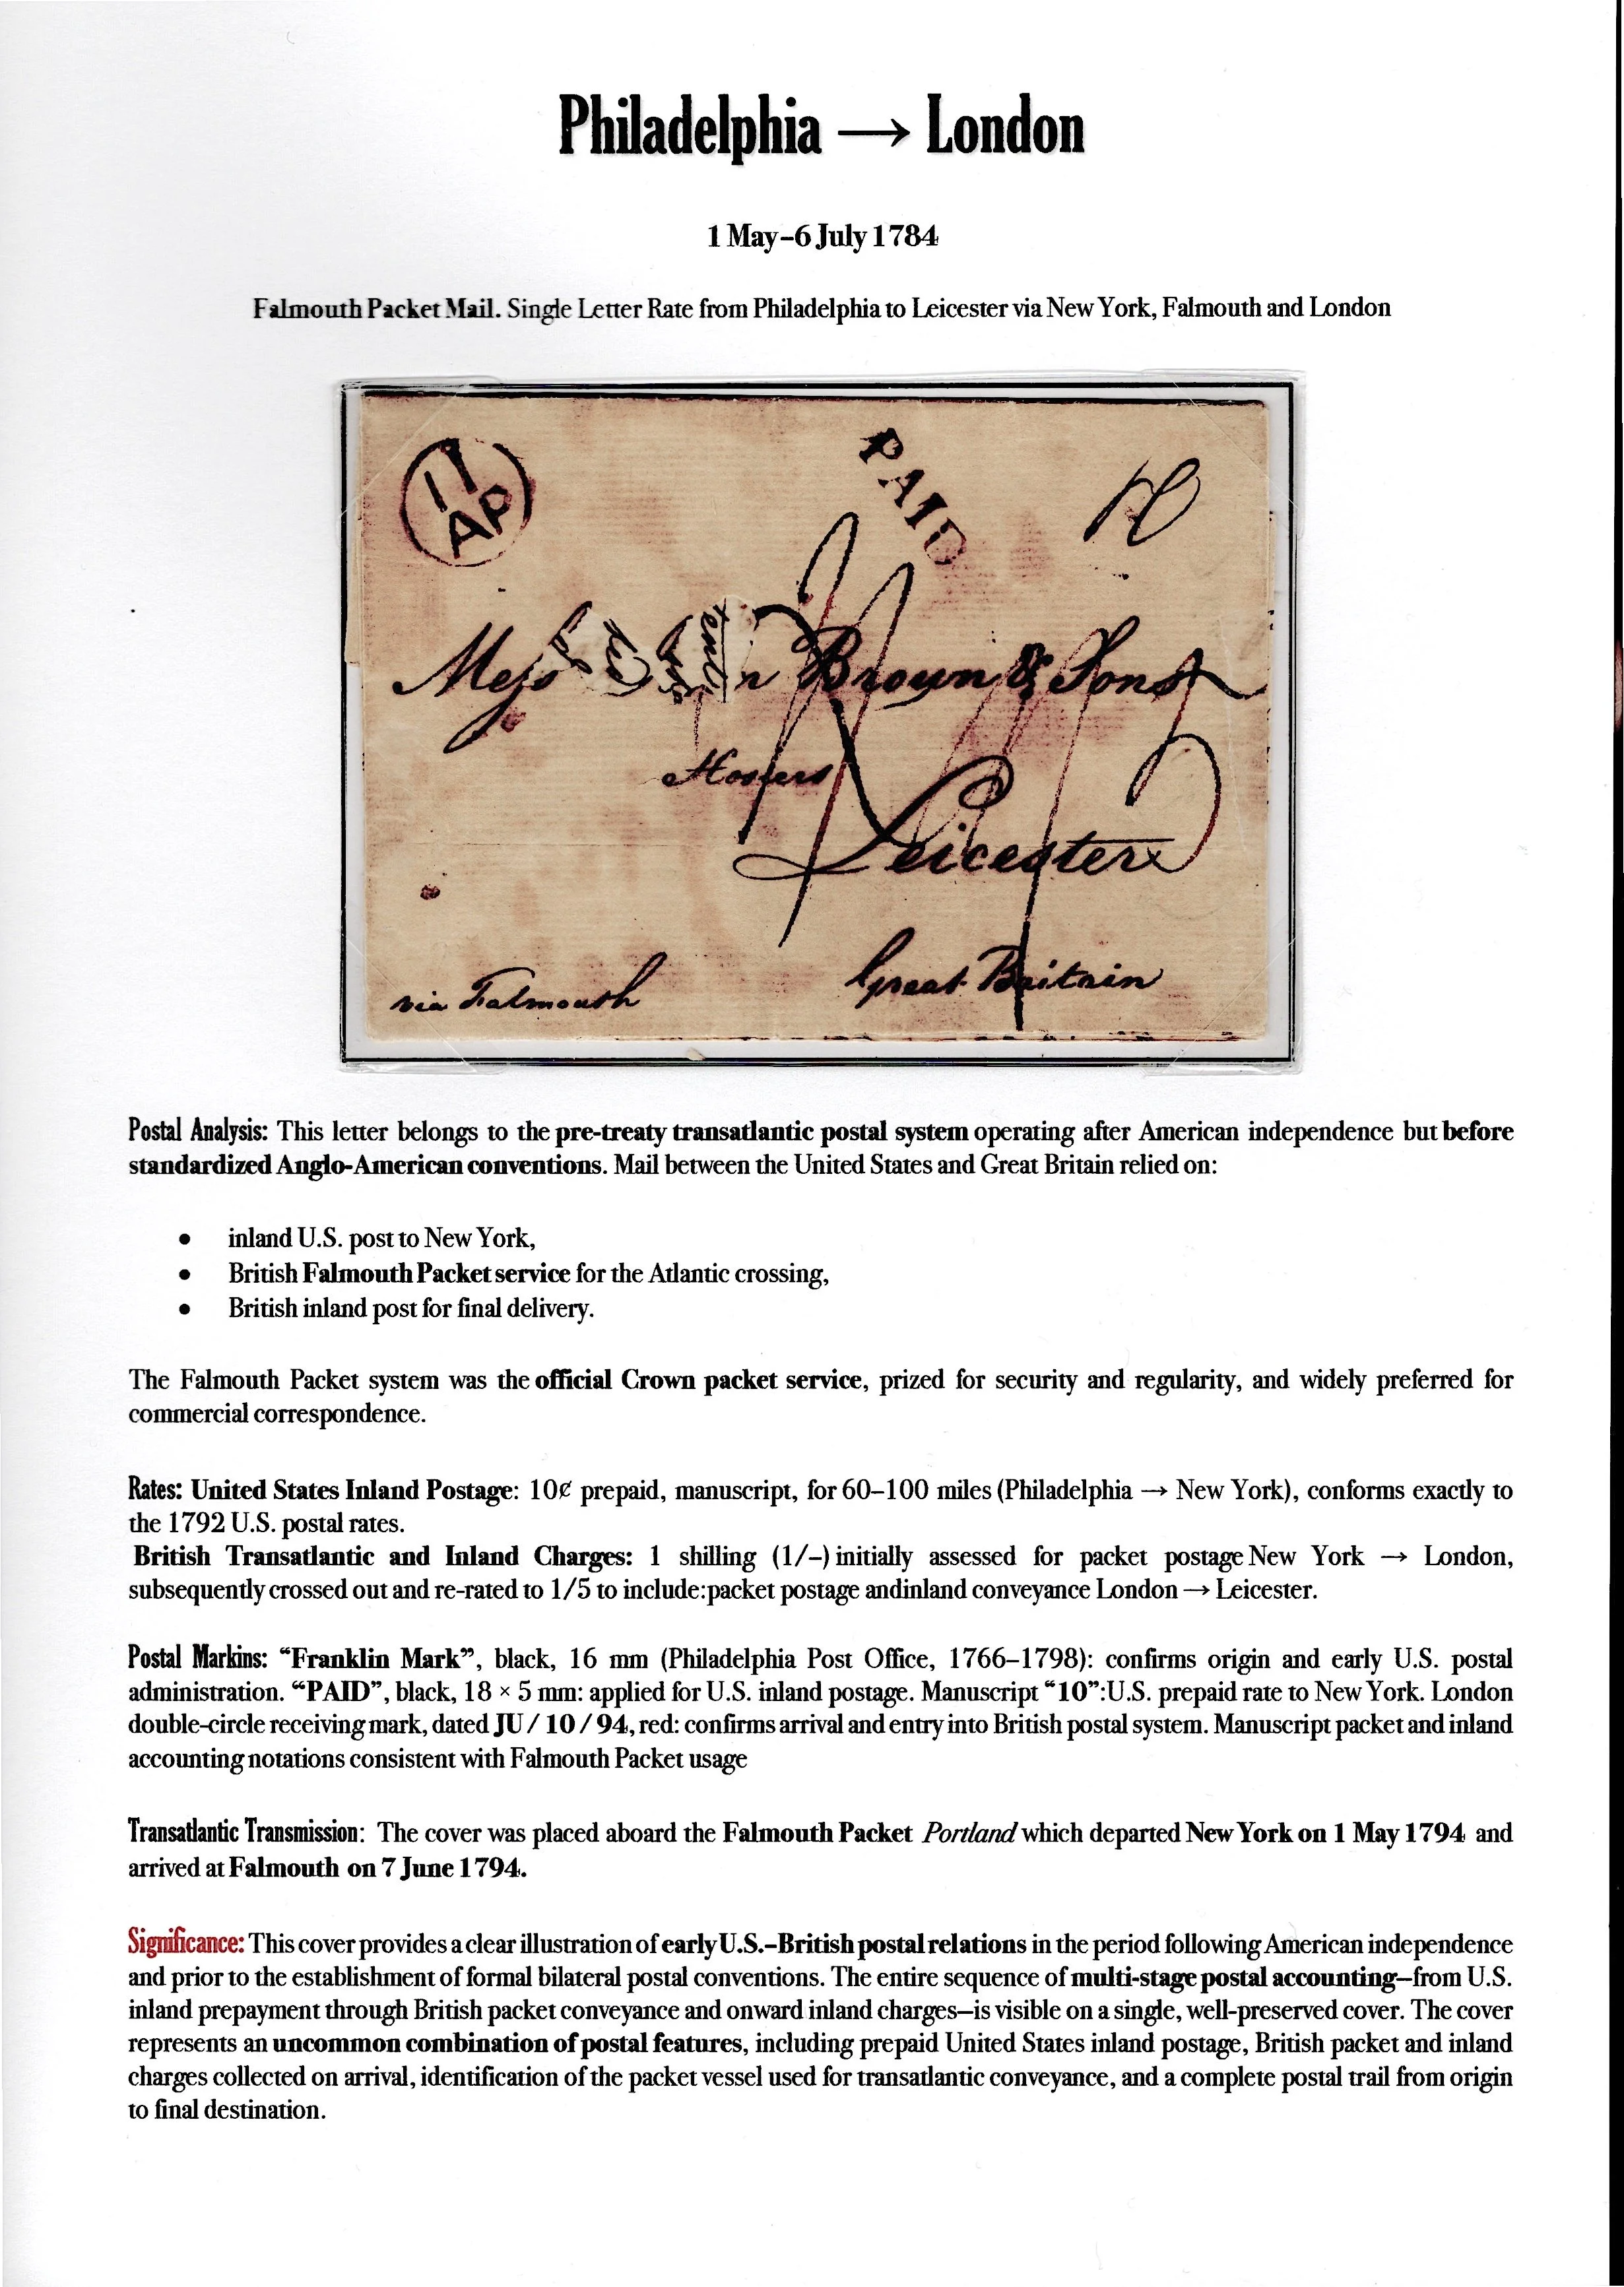 Philadelphia → London
1 May–6 July 1784
Falmouth Packet Mail. Single Letter Rate from Philadelphia to Leicester via New York, Falmouth and London
PAID
10
AP
Brown & Sons
Hosiers
Leicester
Great Britain
via Falmouth
Postal Analysis: This letter belongs to the pre-treaty transatlantic postal system operating after American independence but before
standardized Anglo-American conventions. Mail between the United States and Great Britain relied on:
• inland U.S. post to New York,
• British Falmouth Packet service for the Atlantic crossing,
• British inland post for final delivery.
The Falmouth Packet system was the official Crown packet service, prized for security and regularity, and widely preferred for
commercial correspondence.
Rates: United States Inland Postage: 10¢ prepaid, manuscript, for 60–100 miles (Philadelphia → New York), conforms exactly to
the 1792 U.S. postal rates.
British Transatlantic and Inland Charges: 1 shilling (1/–) initially assessed for packet postage New York → London,
subsequently crossed out and re-rated to 1/5 to include:packet postage andinland conveyance London → Leicester.
Postal Markins: “Franklin Mark”, black, 16 mm (Philadelphia Post Office, 1766–1798): confirms origin and early U.S. postal
administration. “PAID”, black, 18 × 5 mm: applied for U.S. inland postage. Manuscript “10”:U.S. prepaid rate to New York. London
double-circle receiving mark, dated JU / 10 / 94, red: confirms arrival and entry into British postal system. Manuscript packet and inland
accounting notations consistent with Falmouth Packet usage
Transatlantic Transmission: The cover was placed aboard the Falmouth Packet Portland which departed New York on 1 May 1794 and
arrived at Falmouth on 7 June 1794.
Significance: This cover provides a clear illustration of early U.S.–British postal relations in the period following American independence
and prior to the establishment of formal bilateral postal conventions. The entire sequence of multi-stage postal accounting—from U.S.
inland prepayment through British packet conveyance and onward inland charges—is visible on a single, well-preserved cover. The cover
represents an uncommon combination of postal features, including prepaid United States inland postage, British packet and inland
charges collected on arrival, identification of the packet vessel used for transatlantic conveyance, and a complete postal trail from origin
to final destination.